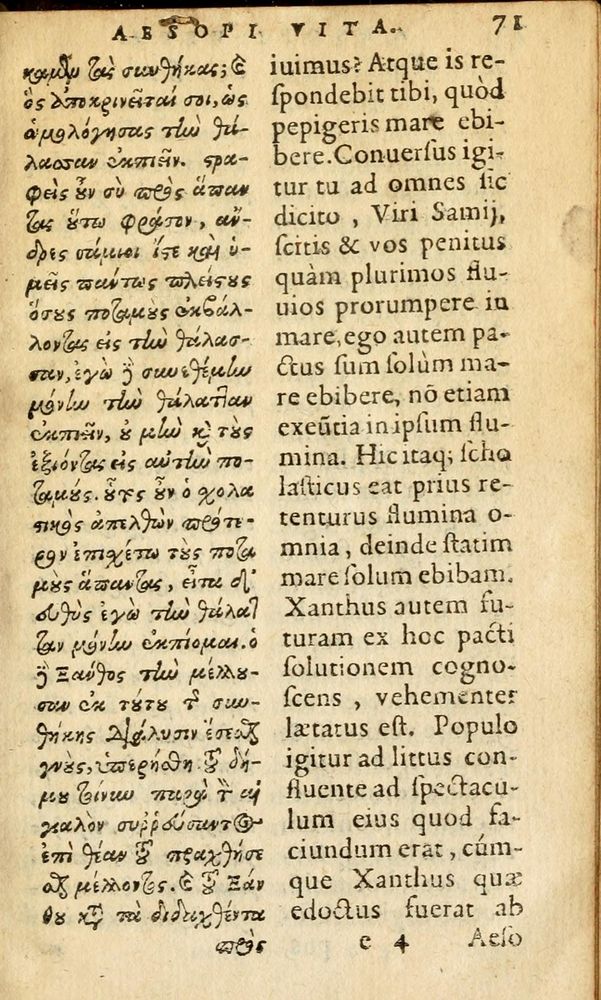 AESOPI VITA. 71
καμὲν τὰς συνθήκας; καὶ
ὃς ἀποκρινεῖταί σοι, ὡς
ὁμολόγησας τὴν θά-
λασσαν ἐκπιεῖν. στρα-
φεὶς οὖν σὺ πρὸς ἅπαν
τας οὕτω φράσον, ἄν-
δρες σάμιοι ἴστε καὶ ὑ-
μεῖς πάντως πλείστους
ὅσους ποταμοὺς ἐκβάλ-
λοντας εἰς τὴν θάλασ-
σαν, ἐγὼ δὲ συνεθέμην
μόνην τὴν θάλατταν
ἐκπιεῖν, οὐ μὴν καὶ τοὺς
ἐξιόντας εἰς αὐτὴν πο-
ταμούς. οὗτος οὖν ὁ σχολα
στικὸς ἀπελθὼν πρότε-
ρον ἐπισχέτω τοὺς ποτα
μοὺς ἅπαντας, εἶτα δ'
εὐθὺς ἐγὼ τὴν θάλατ
ταν μόνην ἐκπίομαι. ὁ
δὲ Ξάνθος τὴν μέλλου-
σαν ἐκ τούτου τῆς συν-
θήκης διάλυσιν ἔσεσθαι
γνοὺς, ὑπερήσθη. τοῦ δή-
μου τοίνυν παρὰ τὸν αἰ
γιαλὸν συρρεύσαντος
ἐπὶ θέαν τοῦ πραχθήσε
σθαι μέλλοντος. καὶ τοῦ Ξάν
θου κατὰ τὰ διδαχθέντα
πρὸς
iuimus? Atque is re-
spondebit tibi, quòd
pepigeris mare ebi-
bere. Conuersus igi-
tur tu ad omnes sic
dicito, Viri Samij,
scitis & vos penitus
quàm plurimos flu-
uios prorumpere in
mare, ego autem pa-
ctus sum solùm ma-
re ebibere, nõ etiam
exeũtia in ipsum flu-
mina. Hic itaq; scho
lasticus eat prius re-
tenturus flumina o-
mnia, deinde statim
mare solum ebibam.
Xanthus autem fu-
turam ex hoc pacti
solutionem cogno-
scens, vehementer
lætatus est. Populo
igitur ad littus con-
fluente ad spectacu-
lum eius quod fa-
ciundum erat, cúm-
que Xanthus quæ
edoctus fuerat ab
e 4 Aeso